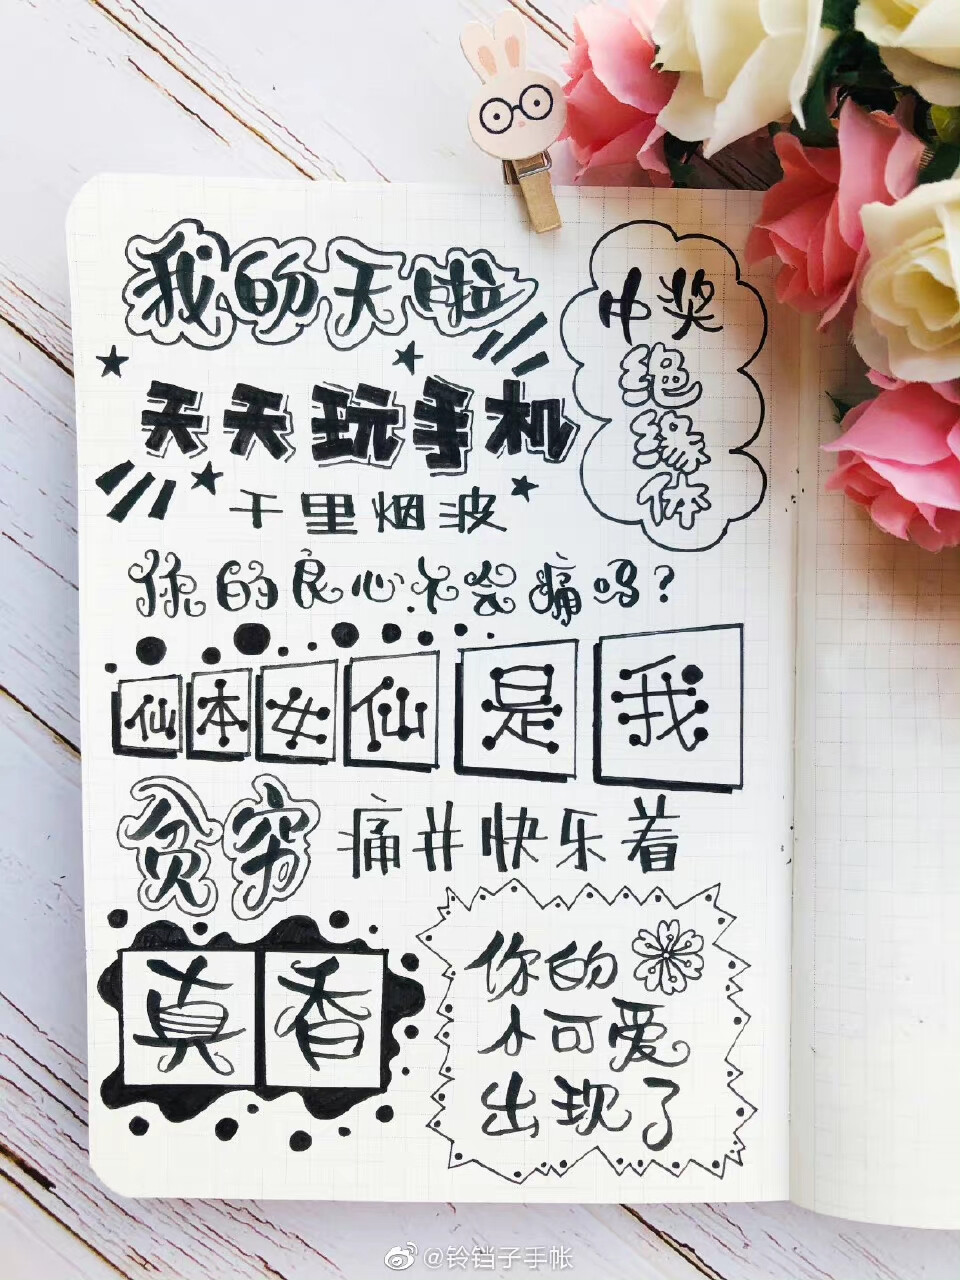 我的天啦
中奖
绝
缘
体
天天玩手机
千里烟波
你的良心不会痛吗?
仙本女仙是我
贫穷
痛并快乐着
真香
你的
小可爱
出现了
@铃铛子手帐